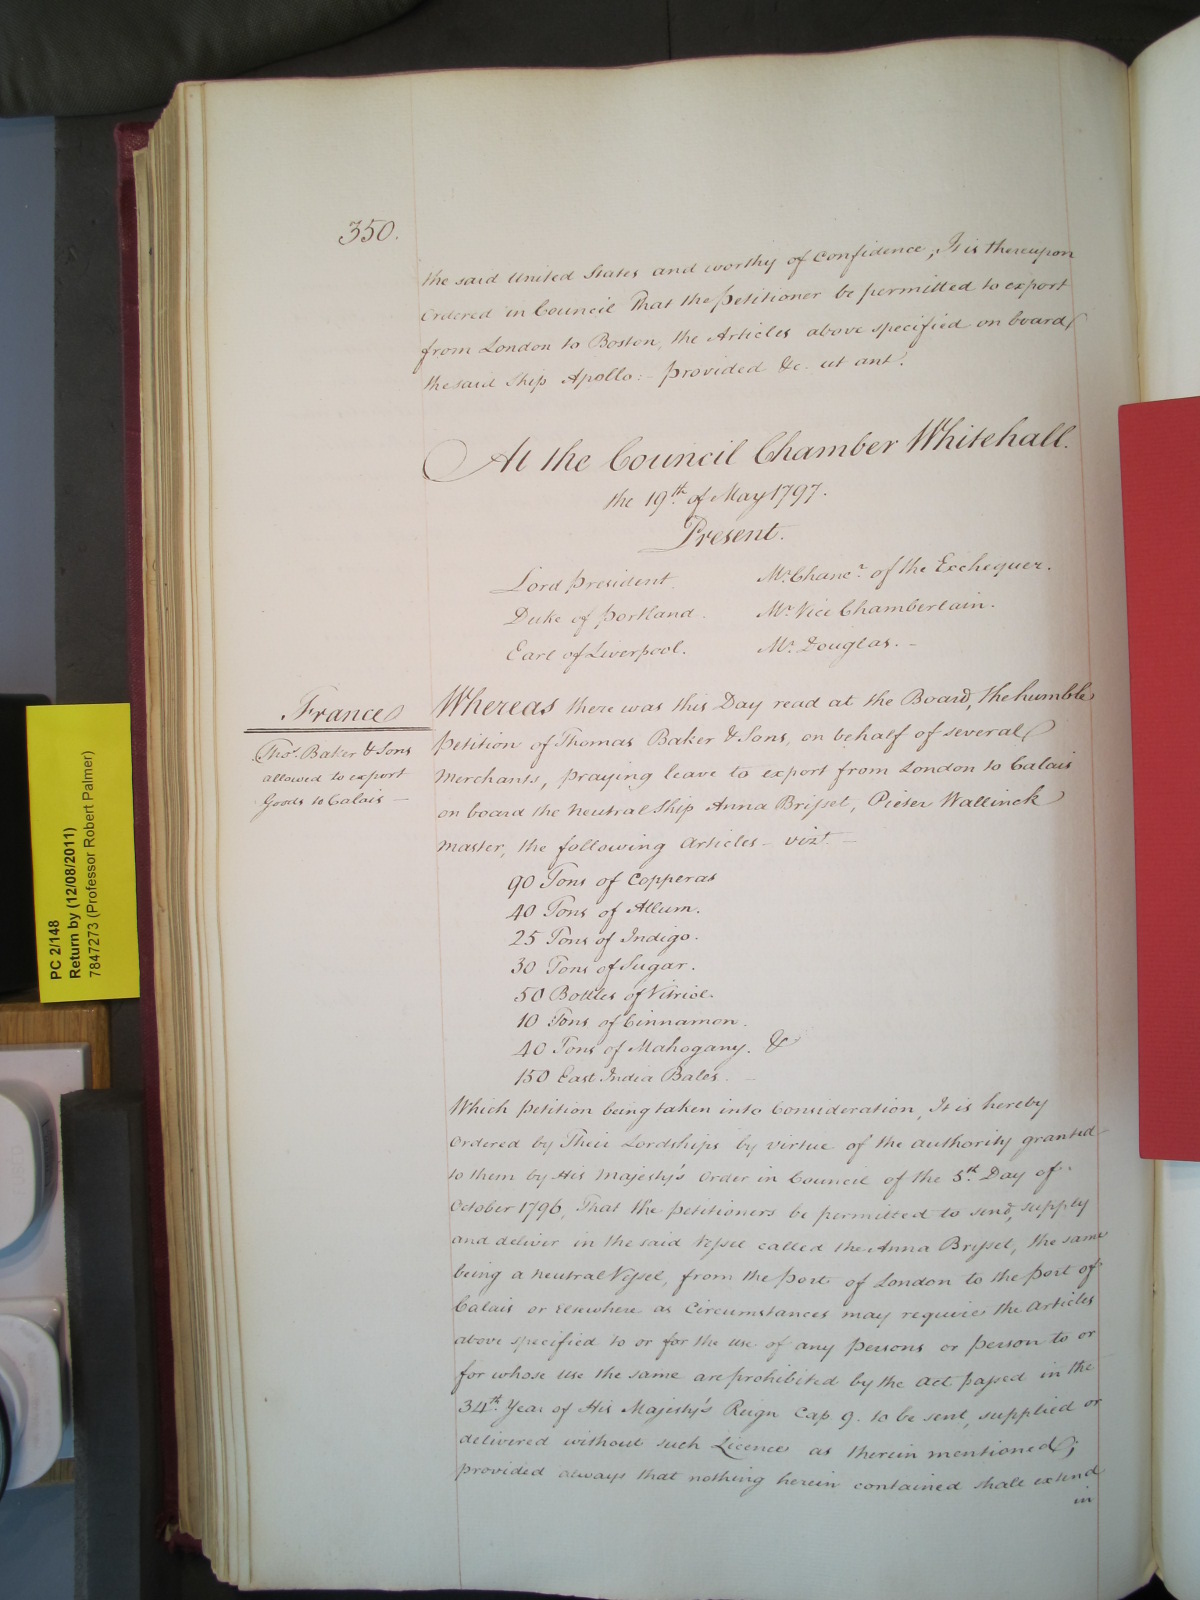 350.
the said United States and worthy of Confidence, It is thereupon
Ordered in Council That the Petitioner be permitted to export
from London to Boston, the Articles above specified on board
the said Ship Apollo:- Provided &c. ut ant.
At the Council Chamber Whitehall.
the 19th of May 1797.
Present.
Lord President Mr. Chancr. of the Exchequer.
Duke of Portland. Mr. Vice Chamberlain.
Earl of Liverpool. Mr. Douglas. -
France
Thos. Baker & Sons
allowed to export
Goods to Calais -
Whereas there was this Day read at the Board, the humble
Petition of Thomas Baker & Sons, on behalf of several
Merchants, praying leave to export from London to Calais
on board the Neutral Ship Anna Brissel, Pieter Wallinck
Master, the following Articles - vizt. -
90 Tons of Copperas
40 Tons of Allum.
25 Tons of Indigo.
30 Tons of Sugar.
50 Bottles of Vitriol.
10 Tons of Cinnamon.
40 Tons of Mahogany. &
150 East India Bales. -
Which Petition being taken into Consideration, It is hereby
Ordered by Their Lordships by virtue of the authority granted
to them by His Majesty's Order in Council of the 5th Day of
October 1796, That the Petitioners be permitted to send, supply
and deliver in the said Vessel called the Anna Brissel, the same
being a neutral Vessel, from the Port of London to the Port of
Calais or Elsewhere as Circumstances may require the Articles
above specified to or for the use of any Persons or Person to or
for whose use the same are prohibited by the Act passed in the
34th. Year of His Majesty's Reign Cap. 9. to be sent, supplied or
delivered without such Licence as therein mentioned;
provided always that nothing herein contained shall extend
in
PC 2/148
Return by (12/08/2011)
7847273 (Professor Robert Palmer)